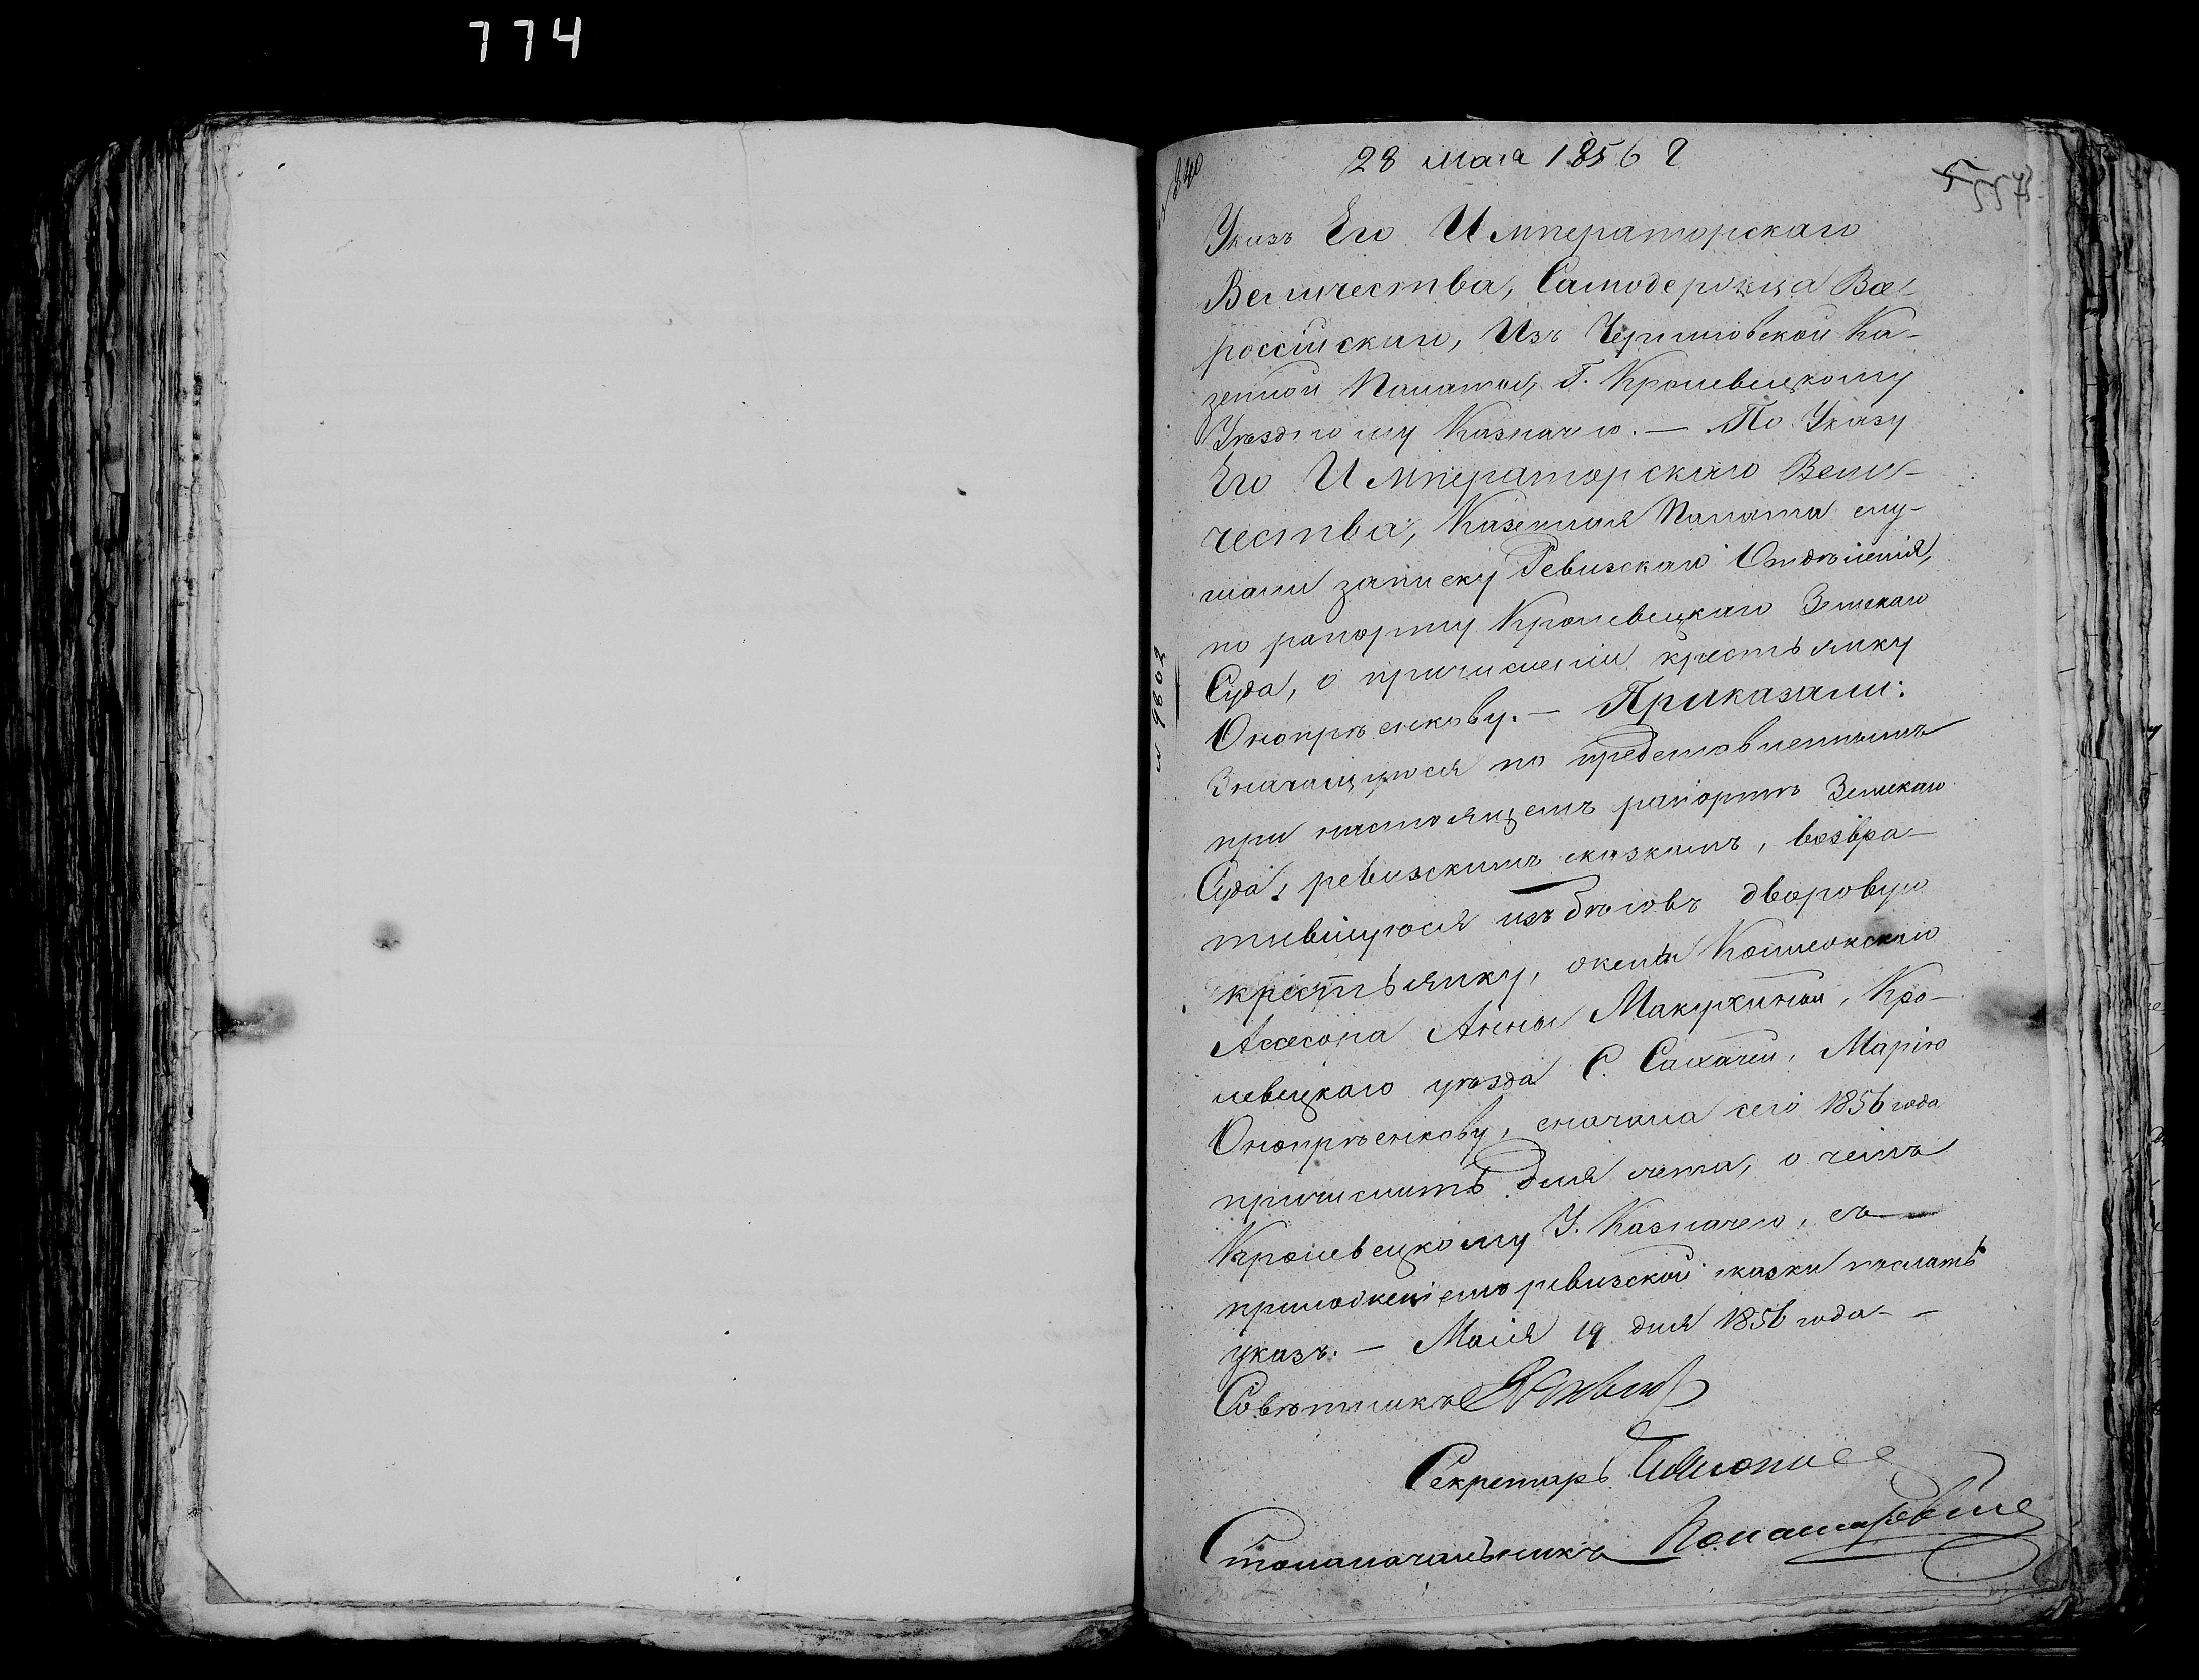 774
28 мая 1856 г
Указъ Его Императорскаго
Величества, Самодержца Все-
россійскаго, Изъ Черниговской Ка-
зенной Палаты, Г. Кролевецкому
Уѣздному Казначею. — По Указу
Его Императорскаго Вели-
чества, Казенная Палата слу-
шали записку Ревизскаго Отдѣленія,
по рапорту Кролевецкаго Земскаго
Суда, о причисленіи крестьянку
Онопрѣенкову. — Приказали:
Значащуюся по представленнымъ
при настоящемъ рапортѣ Земскаго
Суда, ревизскимъ сказкамъ, возвра-
тившуюся изъ бѣговъ дворовую
крестьянку, жены Коллежскаго
Асесора Анны Макухиной, Кро-
левецкаго уѣзда С. Сахачи, Марію
Онопрѣенкову, сначала сего 1856 года
причислить для счета, о чемъ
Кролевецкому У. Казначею, съ
приложеніемъ ревизской сказки послать
указъ. — Маія 19 дня 1856 года —
Совѣтникъ
Секретарь
Столоначальникъ